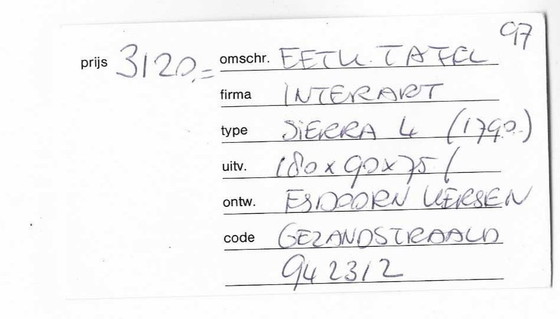 97
prijs 3120,= omschr. EETK. TAFEL
firma INTERART
type SIERRA 4 (1790.)
uitv. 180 x 90 x 75 /
ontw. ESDOORN KERSEN
code GEZANDSTRAALD
942312